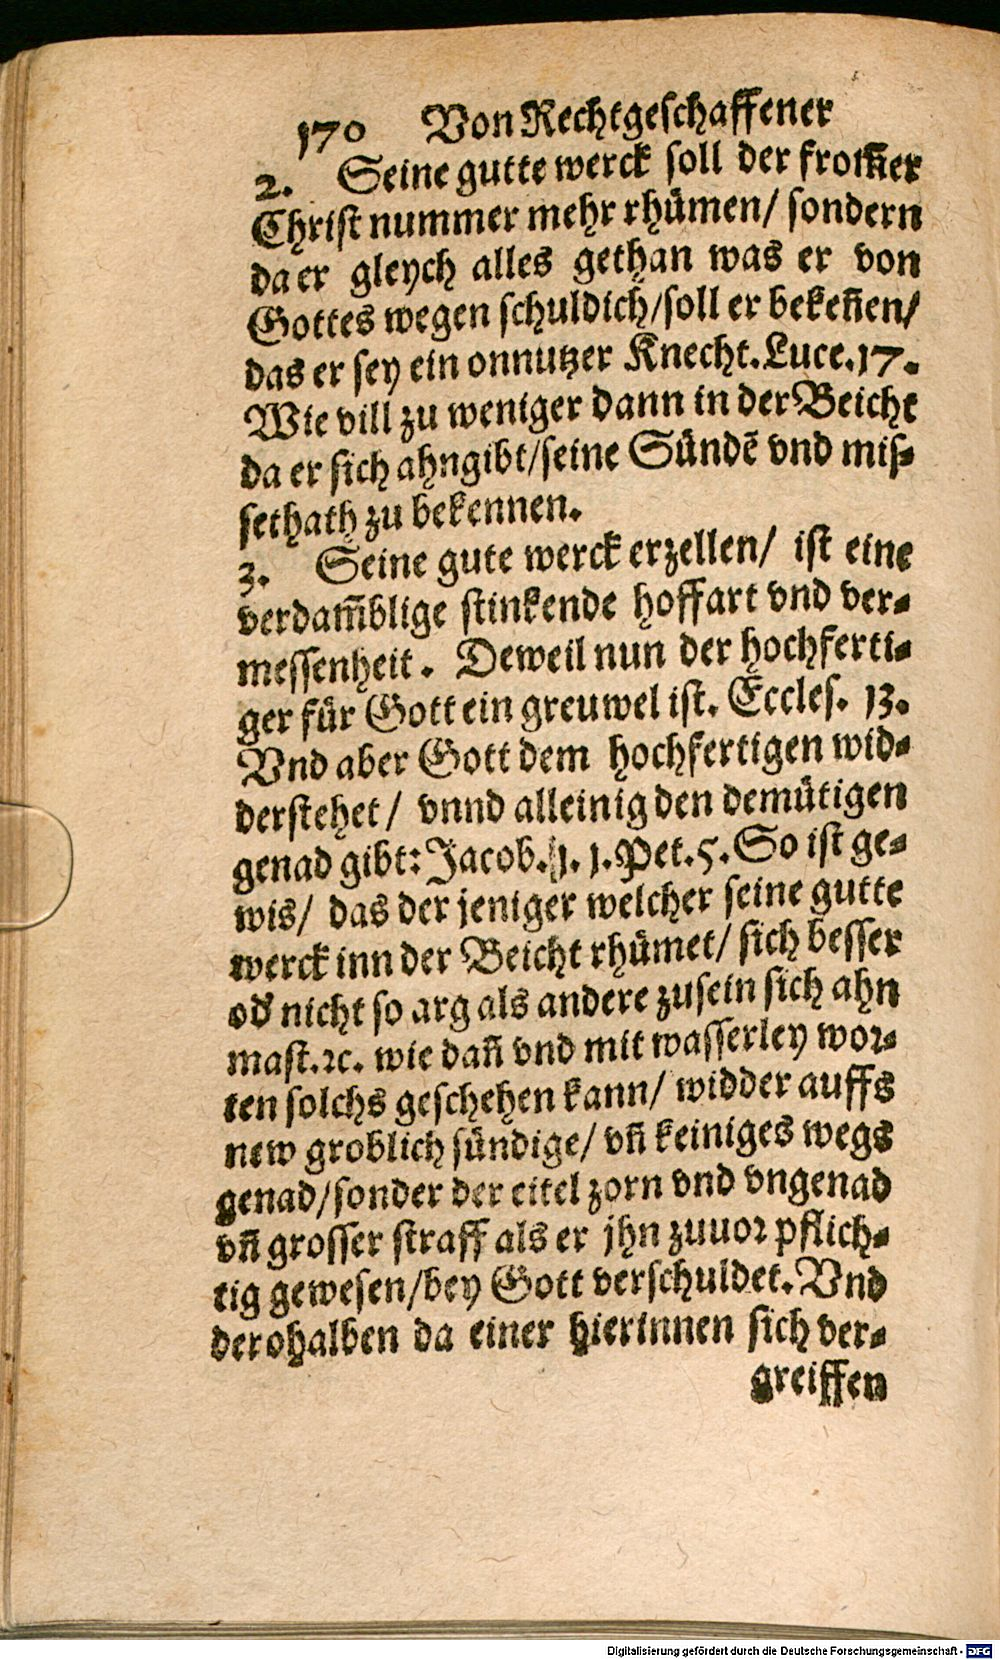 170 Von Rechtgeschaffener
2. Seine gutte werck soll der from̃er
Christ nummer mehr rhümen/ sondern
da er gleych alles gethan was er von
Gottes wegen schuldich/soll er bekeñen/
das er sey ein onnutzer Knecht. Luce.17.
Wie vill zu weniger dann in der Beicht
da er sich ahngibt/seine Sündẽ vnd miss-
sethath zu bekennen.
3. Seine gute werck erzellen/ ist eine
verdam̃blige stinkende hoffart vnd ver-
messenheit. Deweil nun der hochferti-
ger für Gott ein greuwel ist. Eccles. 13.
Vnd aber Gott dem hochfertigen wid-
derstehet/ vnnd alleinig den demütigen
genad gibt: Jacob. 1. Pet. 5. So ist ge-
wis/ das der jeniger welcher seine gutte
werck inn der Beicht rhümet/ sich besser
od' nicht so arg als andere zusein sich ahn
mast.ꝛc. wie dañ vnd mit wasserley wor-
ten solchs geschehen kann/ widder auffs
new groblich sündige/ vñ keiniges wegs
genad/sonder der eitel zorn vnd vngenad
vñ grosser straff als er jhn zuuor pflich-
tig gewesen/bey Gott verschuldet. Vnd
derohalben da einer hierinnen sich ver-
greiffen
Digitalisierung gefördert durch die Deutsche Forschungsgemeinschaft - DFG